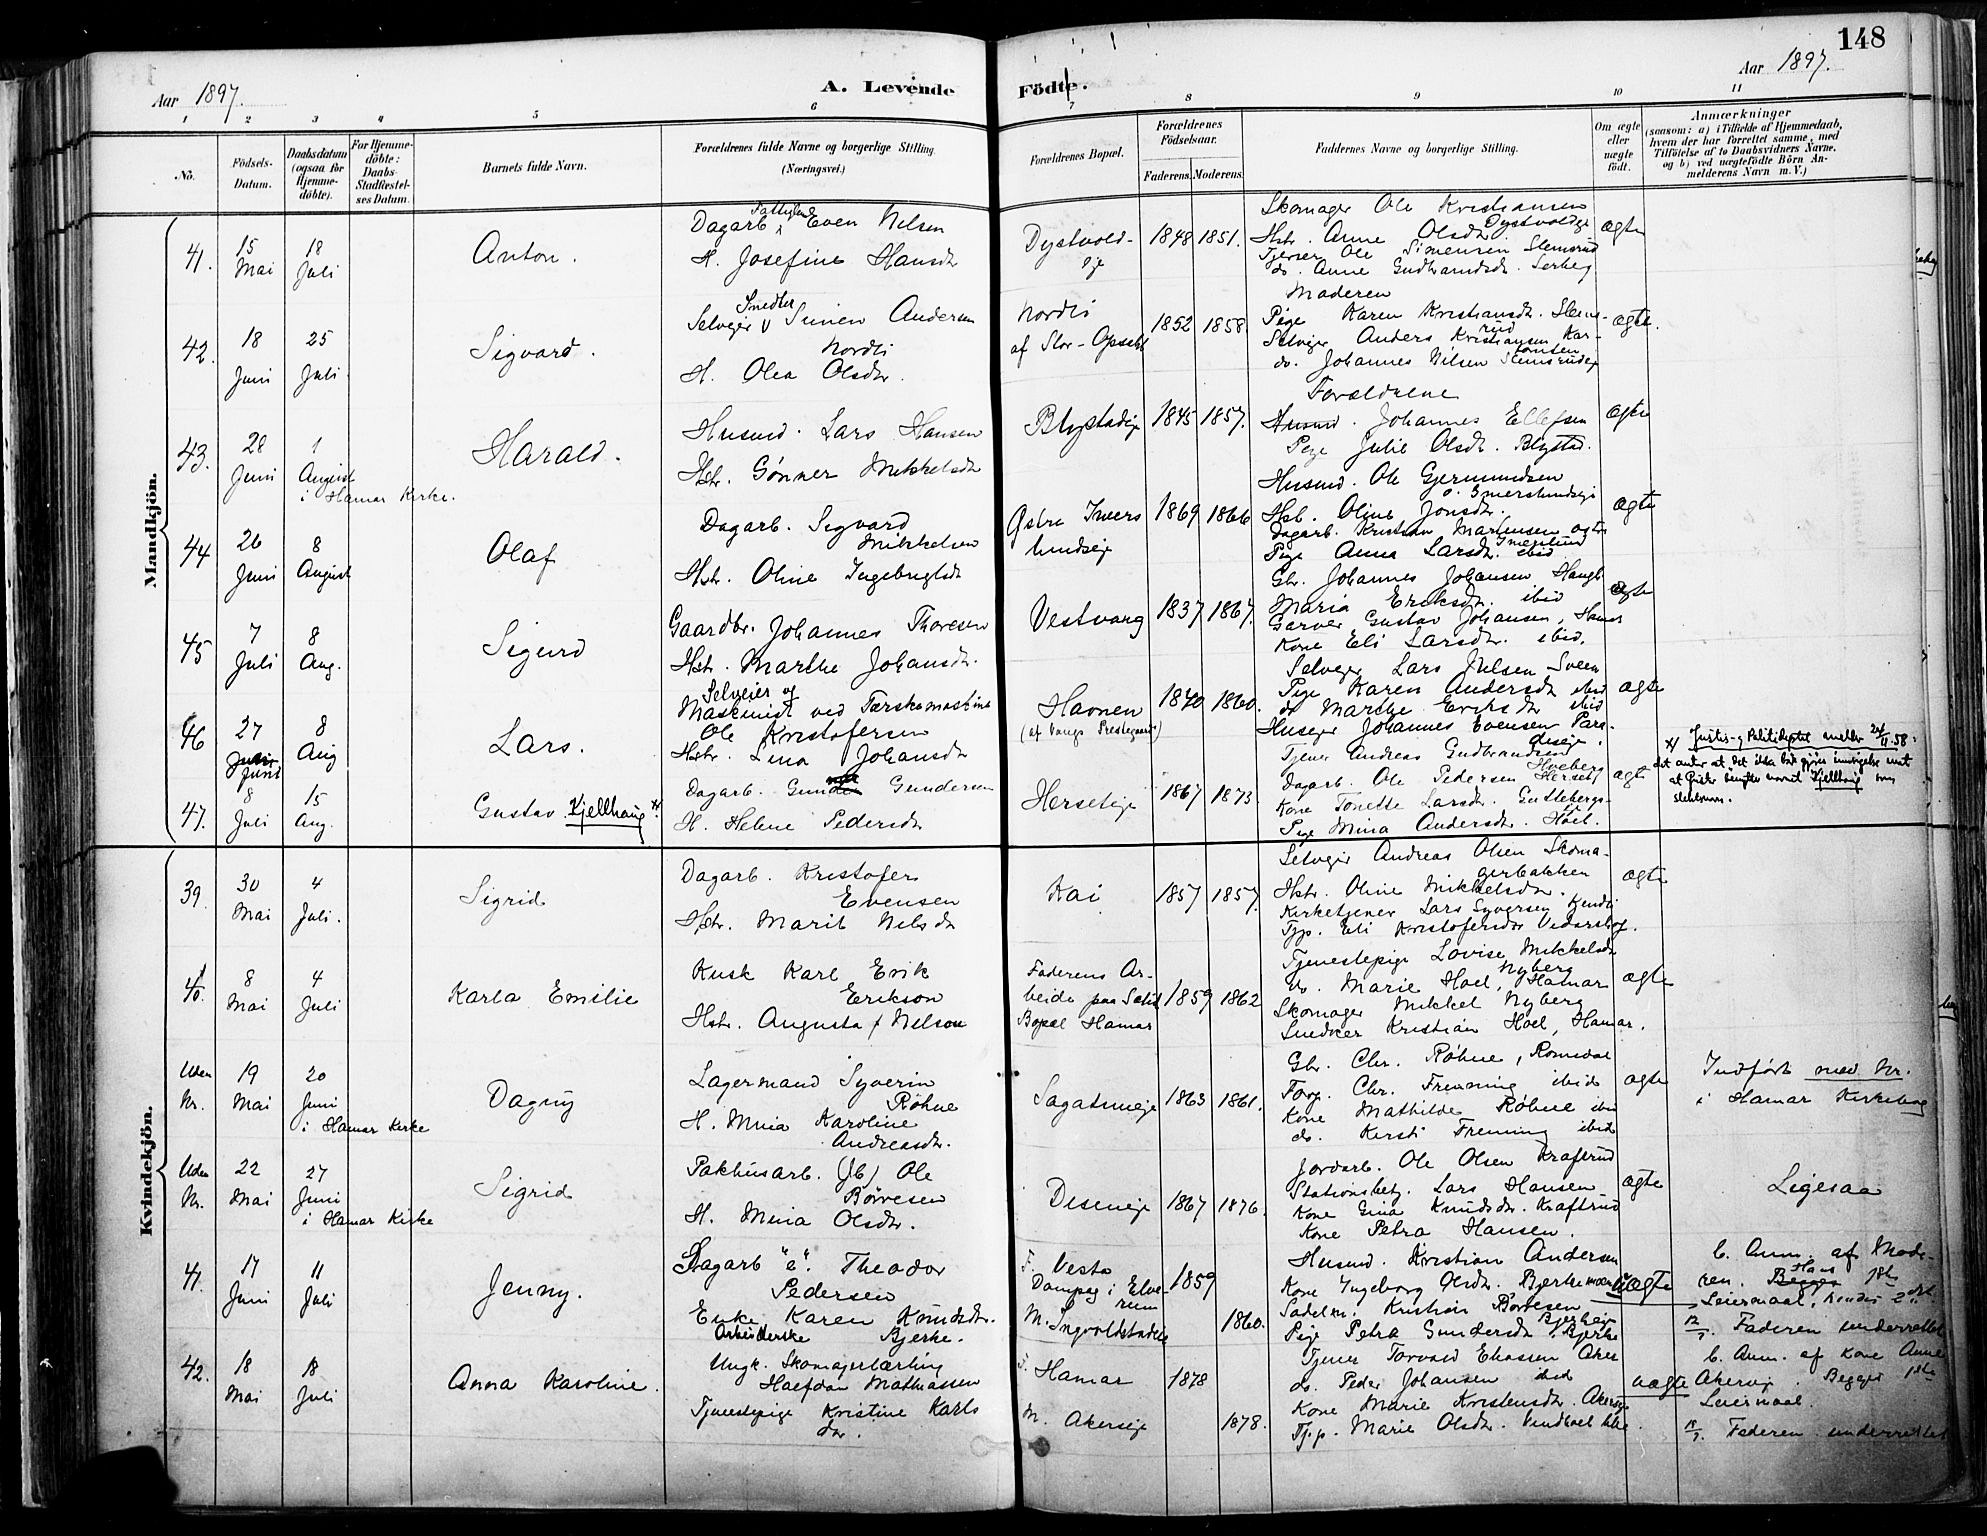 148
Aar 1897.
A. Levende
Födte.
Aar 1897.
1 2 3 4 5 6 7 8 9 10 11
No.
Födsels-Datum.
Daabsdatum (ogsaa for Hjemme-döbte).
For Hjemme-döbte: Daabs-Stadfæstel-ses Datum.
Barnets fulde Navn.
Forældrenes fulde Navne og borgerlige Stilling. (Næringsvei.)
Forældrenes Bopæl.
Forældrenes Födselsaar.
Faderens. Moderens.
Faddernes Navne og borgerlige Stilling.
Om ægte eller uægte födt.
Anmærkninger
(saasom: a) i Tilfælde af Hjemmedaab,
hvem der har forrettet samme, med
Tilföielse af to Daabsvidners Navne,
og b) ved uægtefödte Börn An-
melderens Navn m. V.)
Mandkjön.
41.
15 Mai
18 Juli
Anton.
Dagarb. Even Nilsen
H. Josefine Hansdr
Dystvold-
eje
1848 1851.
Skomager Ole Kristiansen
Dystvoldeje
Hstr. Anne Olsdr
Tjener Ole Simensen Slemsrud
do. Anne Gudbrandsdr.
ægte
42.
18 Juni
25 Juli
Sigvard.
Smedber
Selveier Simen Andersen
Nordli
H. Olea Olsdr.
Nordli
af Stor-Opsal
1852 1858.
Moderen
Pige Karen Kristiansdr. Slems-
rud
Selveier Anders Kristiansen Kar-
do. Johannes Nilsen Slemsrudeje
ægte.
43.
28 Juni
1 August
i Hamar Kirke.
Harald.
Husmd. Lars Hansen
Hstr. Gönner Mikkelsdr
Blystadeje
1845 1857.
Forældrene
Husmd. Johannes Ellefsen
Pige Julie Olsdr. Blystad.
ægte
44.
26 Juni
8 August
Olaf
Dagarb. Sigvard
Mikkelsen
Hstr. Oline Ingebrigtsdr
Östre Imers
lundseje
1869 1866
Husmd. Ole Gjermundsen
Imerslundseje
Hst. Oline Jonsdr.
Dagarb. Kristian Martinsen
Pige Anna Larsdr. ibid
ægte
45
7 Juli
8 Aug.
Sigurd
Gaardbr. Johannes Thoresen
Hstr. Marthe Johansdr.
Vestvang
1837 1867.
Gbr. Johannes Johansen Haug
Maria Eriksdr. ibid
Garver Gustav Johansen, Hamar
Kone Eli Larsdr. ibid.
ægte
46
27 Juni
8 Aug
Lars.
Selveier og
Maskinist ved Tærskemaskine
Ole Kristofersen
Hstr. Lina Johansdr
Havnen
(af Vangs Prestegaard)
1840 1860.
Selveger Lars Julsen Sveen
Pige Karen Andersdr ibid
do Marthe Eriksdr ibid
Huseger Johannes Evensen Para-
diseje.
Tjener Andreas Gudbrandsen
ægte
47.
8 Juli
15 Aug.
Gustav Kjellhaug x)
Dagarb. Gundersen
H. Helene Pedersdr
Herseteje
1867 1873.
Dagarb. Ole Pedersen Herset
Kone Tonette Larsdr. Guttebergs-
Pige Mina Andersdr. Hoel.
ægte
x) Justis- og Politidept meddr 24/11.58:
at Gustav benytter navnet Kjellhaug som
slektsnavn.
Kvindekjön.
39.
30 Mai
4 Juli.
Sigrid
Dagarb. Kristofer
Evensen
Hstr. Marit Nilsdr
Kai
1857 1857.
Selveger Andreas Olsen Skoma-
gerbakken
Hstr. Oline Mikkelsdr.
Kirketjener Lars Syversen Kendli
Tjp. Eli Kristofersdr Vidarshof.
ægte
40.
8 Mai
4 Juli
Karla Emilie
Kusk Karl Erik
Erikson
Hstr. Augusta f Nelson
Faderens Ar-
beide paa Sælid
Bopæl Hamar
1859 1862
Tjenestepige Lovise Mikkelsdr
Nyberg
do. Marie Hoel, Hamar
Skomager Mikkel Nyberg
Snedker Kristian Hoel, Hamar.
ægte
Uden Nr.
19 Mai
20 Juni
i Hamar Kirke
Dagny
Lagermand Syverin
Röhne
H. Mina Karoline
Andreasdr.
Sagatuneje
1863 1861.
Gbr. Chr. Röhne, Romedal
Forp. Chr. Frenning ibid
Kone Mathilde Röhne ibid
do. Kersti Frenning ibid
ægte
Indfört med Nr.
i Hamar Kirkebog
Uden Nr.
22 Mai
27 Juni
i Hamar Kirke
Sigrid
Pakhusarb. (Jb) Ole
Börresen
H. Mina Olsdr.
Diseneje
1867 1876.
Jordarb. Ole Olsen Kraftrud
Stationsbetj. Lars Hansen
Kone Gina Knudsdr. Kraftrud
Kone Petra Hansen.
ægte
Ligesaa
41.
17 Juni
11 Juli
Jenny.
Dagarb "e". Theodor
Pedersen
Enke Karen Knudsdr.
Arbeiderske Bjerke.
F. Vesta
Dampsag i Elve-
rum
M. Ingvoldstadeje
1859
1860.
Husmd. Kristian Andersen
Kone Ingeborg Olsdr. Bjerke
Sadelm. Kristian Börresen
Pige Petra Gundersdr. Bjerke
uægte
b. Anm. af Mode-
ren. Hans 1ste
Leiermaal, hendes 2det.
12/7. Faderen underrettet
42.
18 Mai
18 Juli
Anna Karoline.
Ungk. Skomagerlærling
Halfdan Mathiassen
Tjenestepige Kristine Karls
dr.
F. Hamar
M. Akerseje
1878
1878.
Tjener Torvald Eliassen Aker
do. Peder Johansen ibid
Kone Marie Kristensdr. Akerseje
Tjp. Marie Olsdr.
uægte
b. Anm. af Kone Anne
Akerseje. Begges 1ste
Leiermaal.
18/7. Faderen underrettet